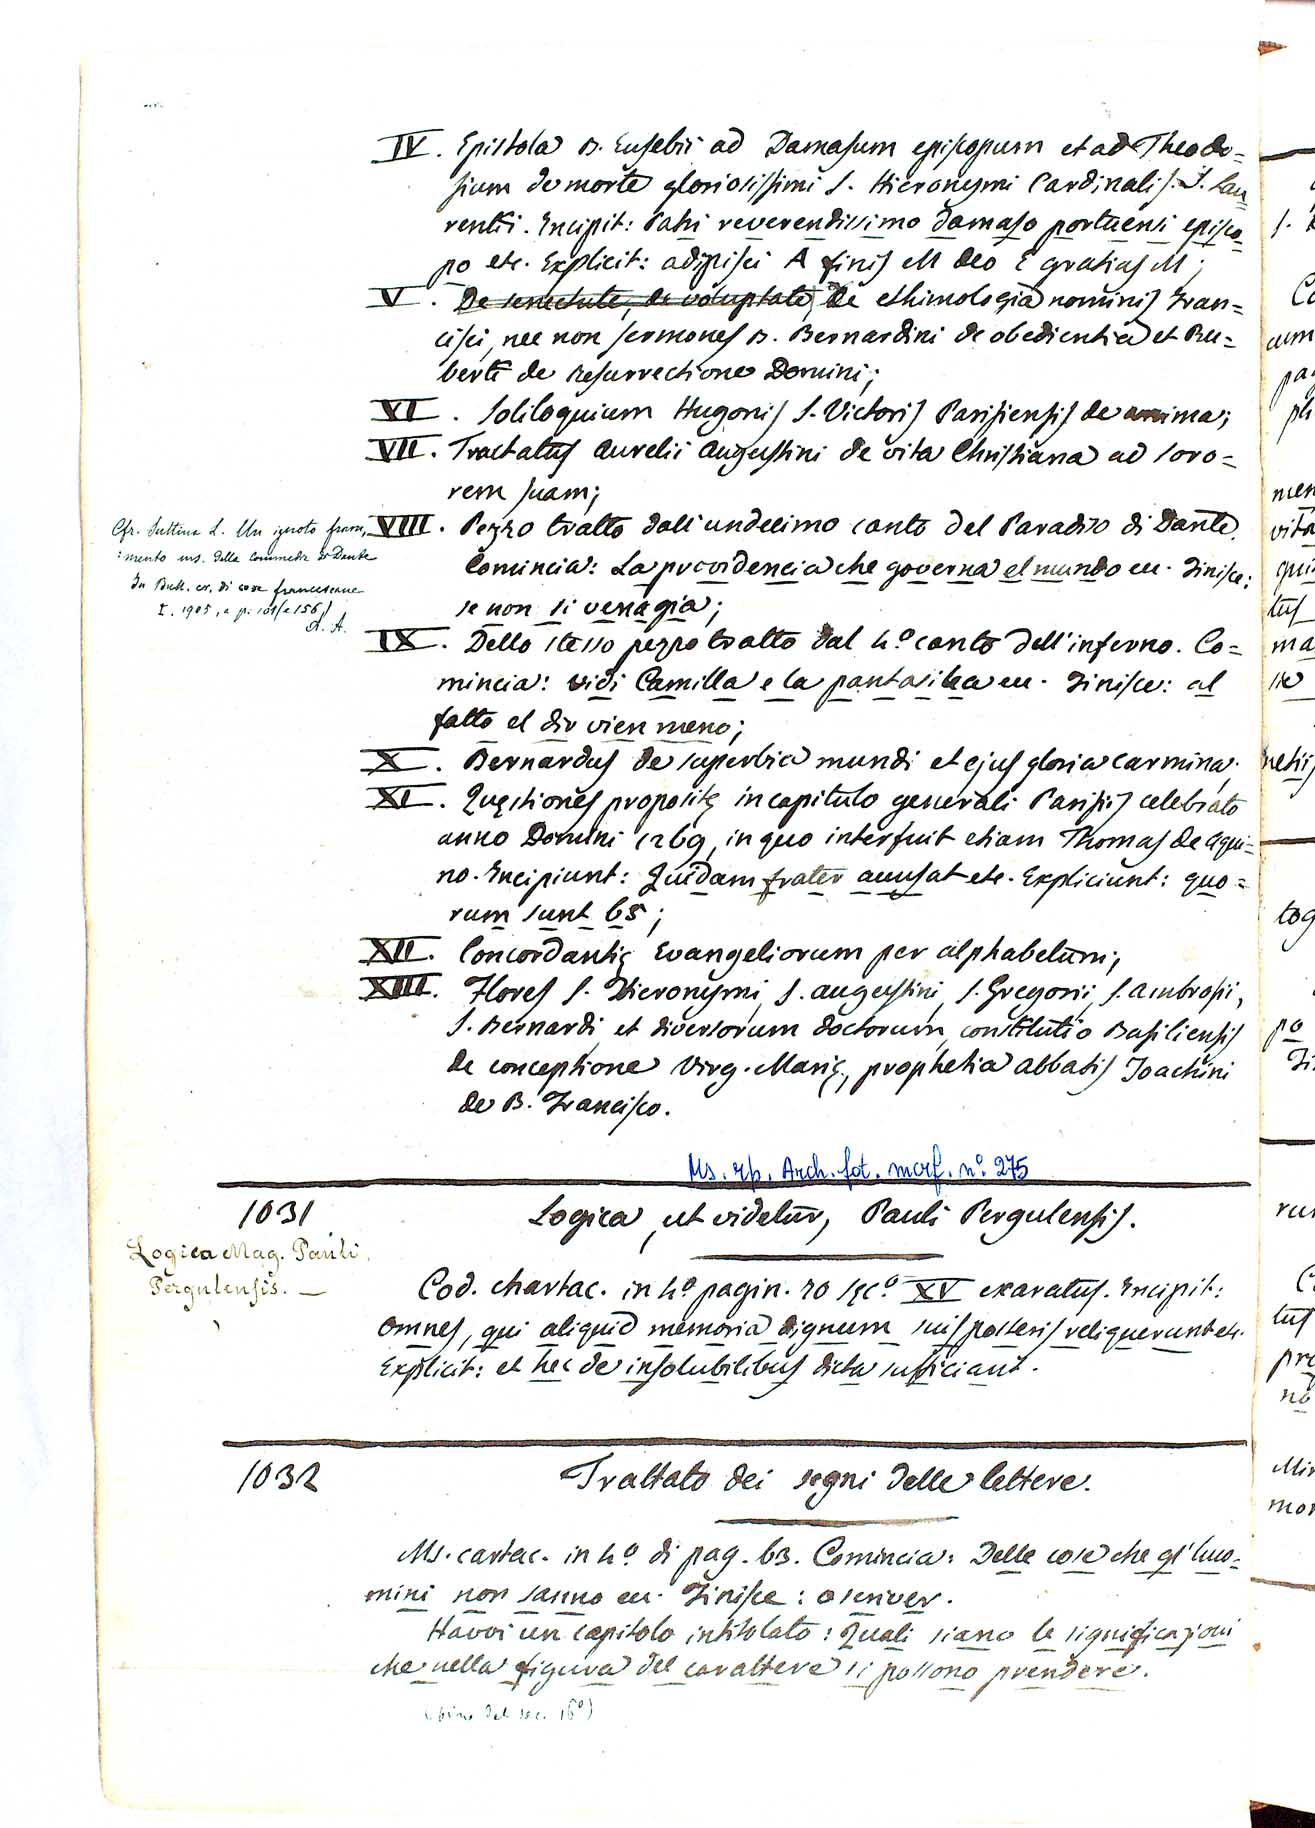 IV. Epistola B. Eusebii ad Damasum episcopum et ad Theodo=
sium de morte gloriosissimi S. Hieronymi Cardinalis S. Lau=
rentii. Incipit: Patri reverendissimo damaso portuensi episco=
po etc. Explicit: adipisci A finis M deo E gratias M;
V. De senectute, de voluptate, De ethimologia nominis Fran=
cisci, nec non sermones B. Bernardini de obedientia et Ru=
berti de Resurrectione Domini;
VI. Soliloquium Hugonis S. Victoris Parisiensis de anima;
VII. Tractatus Aurelii Augustini de vita Christiana ad soro=
rem suam;
VIII. Pezzo tratto dall'undecimo canto del Paradiso di Dante.
Comincia: La providencia che governa el mundo ecc. Finisce:
se non si vanagia;
Cfr. Suttina L. Un ignoto fram,
=mento ms. della Commedia di Dante
In Bull. cr. di cose francescane
I. 1905, a p. 101 (e 156)
A. A.
IX. Dello stesso pezzo tratto dal 4º canto dell'inferno. Co=
mincia: vidi Camilla e la pantasilea ecc. Finisce: al
fatto el dir vien meno;
X. Bernardus de superbia mundi et ejus gloria carmina;
XI. Quęstiones propositę in capitulo generali Parisiis celebrato
anno Domini 1269, in quo interfuit etiam Thomas de Aqui=
no. Incipiunt: Quidam frater accusat etc. Expliciunt: quo=
rum sunt 65;
XII. Concordantię Evangeliorum per alphabetum;
XIII. Flores S. Hieronymi, S. Augustini, S. Gregorii, S. Ambrosii,
S. Bernardi et diversorum doctorum, constitutio Basiliensis
de conceptione Virg. Marię, prophetia abbatis Joachini
de B. Francisco.
Ms. rip. Arch. fot. mcrf. nº 275
1031
Logica, ut videtur, Pauli Pergulensis.
Logica Mag. Pauli
Pergulensis. —
Cod. chartac. in 4º pagin. 70 sęcº XV exaratus. Incipit:
Omnes, qui aliquid memoria dignum suis posteris reliquerunt etc.
Explicit: et hec de insolubilibus dicta sufficiant.
1032
Trattato dei segni delle lettere.
Ms. cartac. in 4º di pag. 63. Comincia: Delle cose che gl'huo=
mini non sanno ecc. Finisce: o scriver.
Havvi un capitolo intitolato: Quali siano le significazioni
che nella figura del carattere si possono prendere.
(fine del sec. 16º)